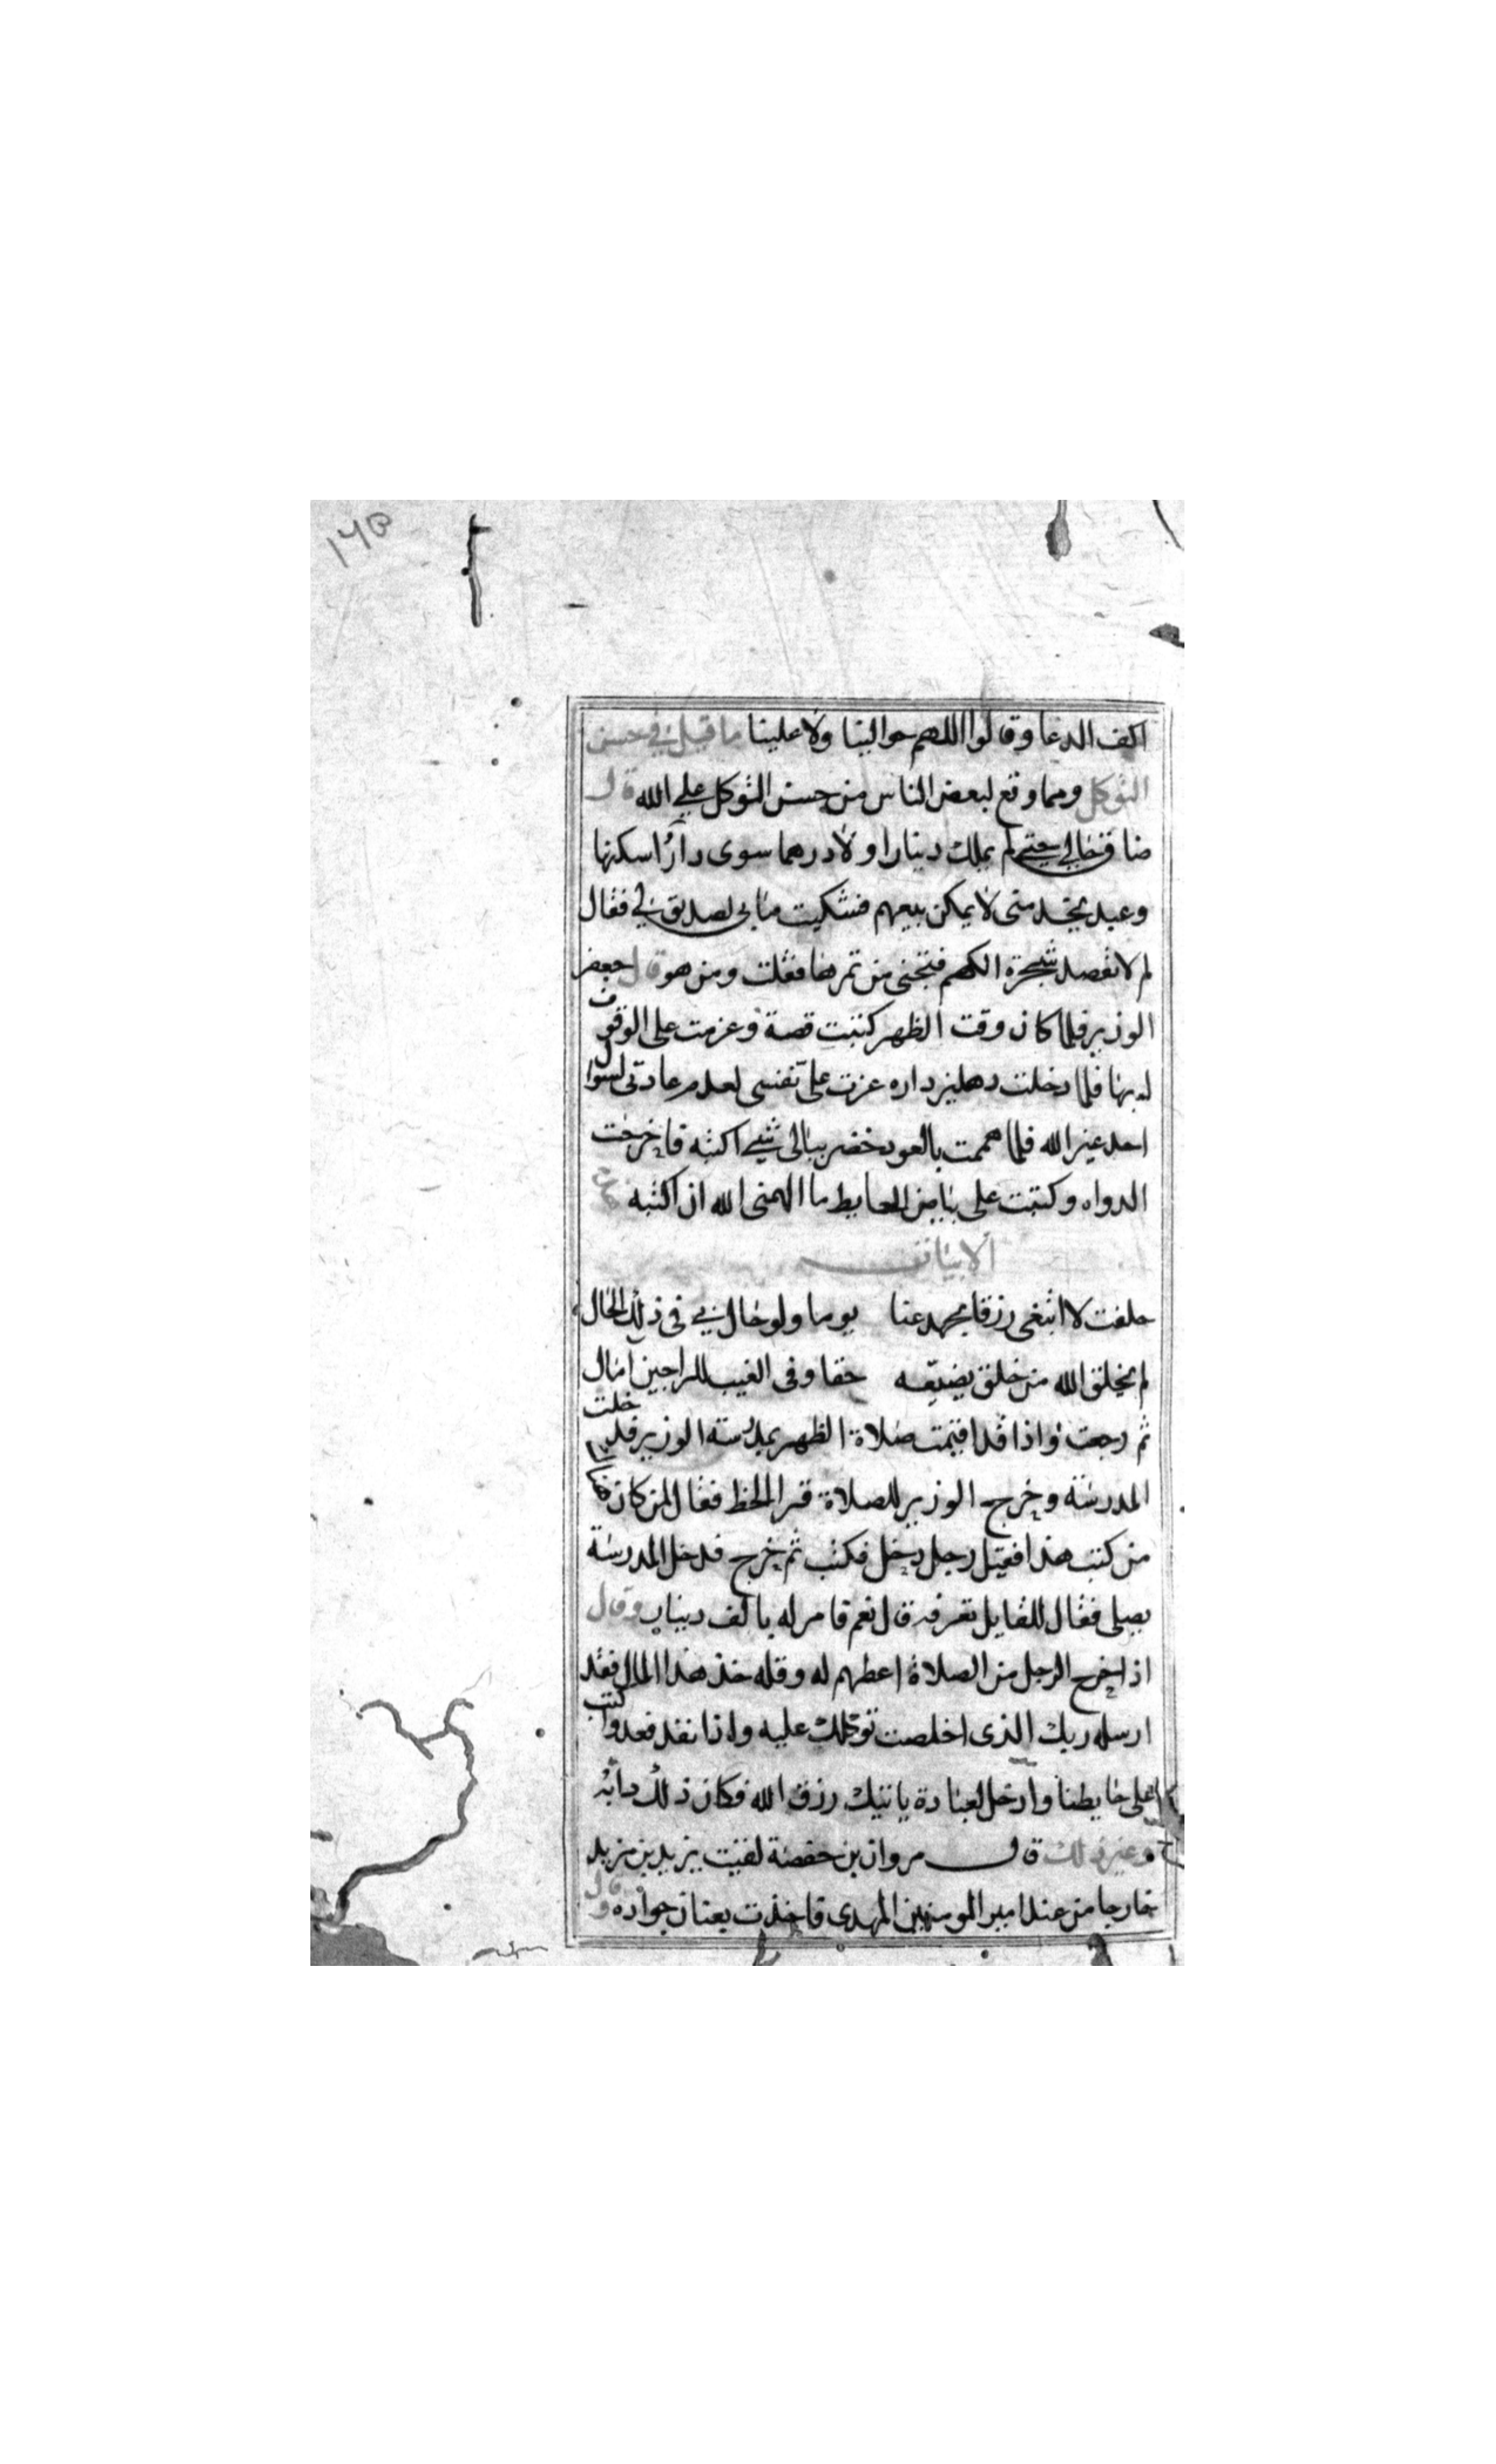 ١٧٥
اكف الدعا وقالوا اللهم حوالينا ولا علينا ما قيل في حسن
التوكل ومما وقع لبعض الناس من حسن التوكل علي الله قال
ضاق حالي حتى لم يملك دينارا ولا درهما سوى دارًا اسكنها
وعبد يخدمنى لا يمكن بيعهم فشكيت ما بى لصديق لي فقال
لم لا تقصد شجرة الكهم فتجنى من ثمرها فقلت ومن هو قال جعفر
الوزير فلما كان وقت الظهر كتبت قصة وعزمت على الوقوف
له بها فلما دخلت دهليز داره عزت علىّ نفسى لعدم عادتى لسوال
احد غير الله فلما هممت بالعود خضر ببالى شيي اكتبه فاخرجت
الدواه وكتبت على بياض الحايط ما الهمنى الله ان اكتبه
الابيات
حلفت لا ابتغى رزقا بجهد عنا يوما ولو حال بي فى ذلك الحال
لم يخلق الله من خلق يضيّعه حقا وفى الغيب للراجين امال
ثم رجعت واذا قد اقيمت صلاة الظهر بمدرسة الوزير فدخلت
المدرسة وخرج الوزير للصلاة قرا الخط فقال لمن كان هناك
من كتب هذا فقيل رجل دخل فكتب ثم خرج فدخل المدرسة
يصلى فقال للقايل تعرفه قال نعم فامر له بالف دينار وقال
اذا خرج الرجل من الصلاة اعطهم له وقله خذ هذا المال فقد
ارسله ربك الذى اخلصت توكلك عليه واذا نفد فعد واكتب
على حايطنا وادخل لعبادة ياتيك رزق الله فكان ذلك دابه
وغير ذلك قال مروان بن حفصة لقيت يزيد بن مزيد
خارجا من عند امير المومنين المهدى فاخذت بعنان جواده وقال